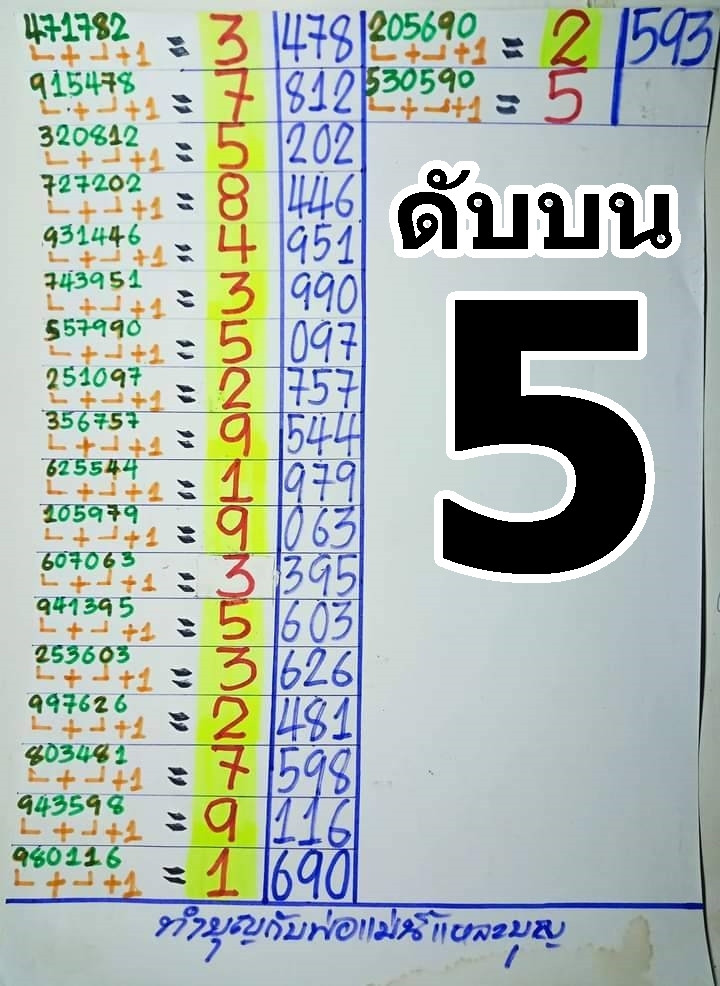 471782 = 3 478
L + ┘ +1
915478 = 7 812
L + ┘ +1
320812 = 5 202
L + ┘ +1
727202 = 8 446
L + ┘ +1
931446 = 4 951
L + ┘ +1
743951 = 3 990
L + ┘ +1
557990 = 5 097
L + ┘ +1
251097 = 2 757
L + ┘ +1
356757 = 9 544
L + ┘ +1
625544 = 1 979
L + ┘ +1
105979 = 9 063
L + ┘ +1
607063 = 3 395
L + ┘ +1
941395 = 5 603
L + ┘ +1
253603 = 3 626
L + ┘ +1
997626 = 2 481
L + ┘ +1
803481 = 7 598
L + ┘ +1
943598 = 9 116
L + ┘ +1
980116 = 1 690
L + ┘ +1
205690 = 2 593
L + ┘ +1
530590 = 5
L + ┘ +1
ดับบน
5
ทำบุญกับพ่อแม่นี้แหละบุญ